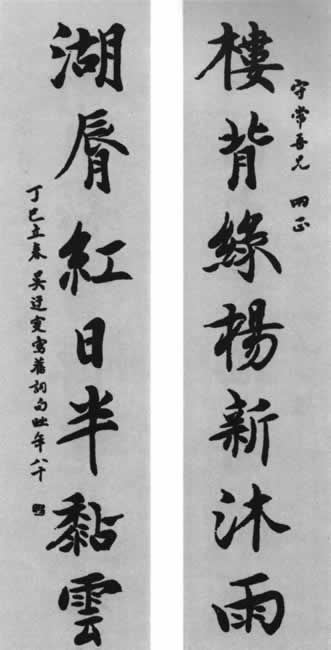 守常吾兄 正
樓背綠楊新沐雨
湖脣紅日半黏雲
丁巳立春吳寫舊詞句時年八十